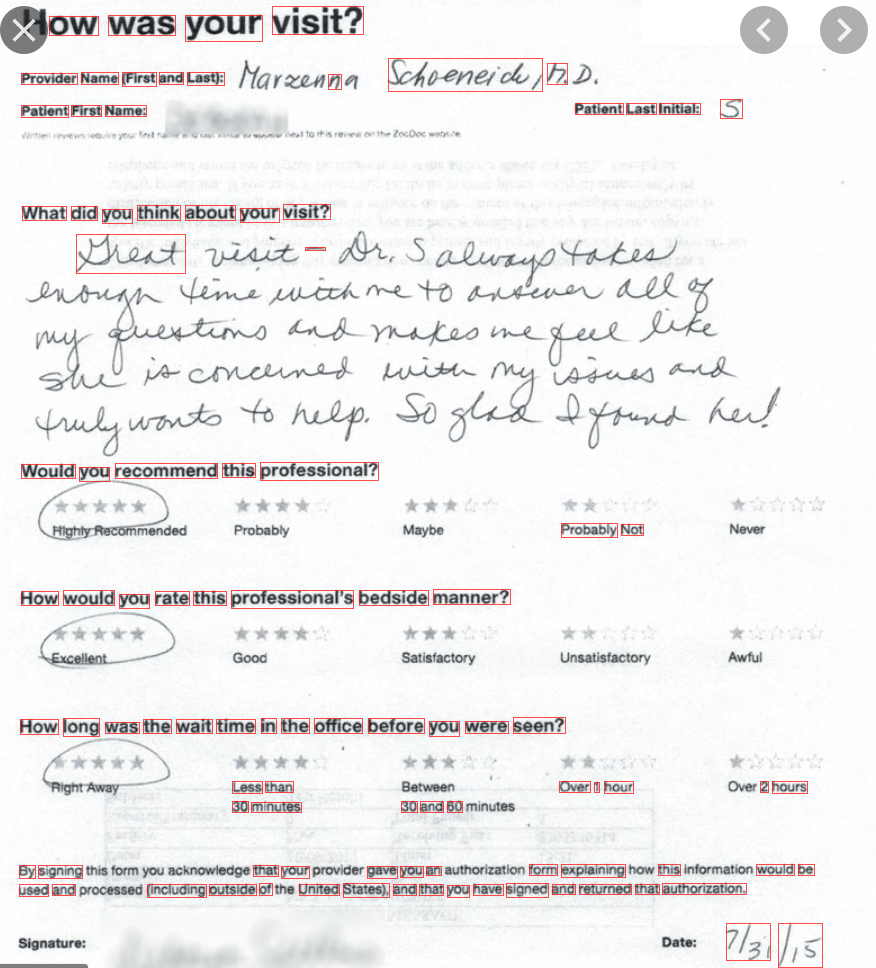 How was your visit?
Provider Name (First and Last): Marzenna Schoeneich, M.D.
Patient First Name:
Patient Last Initial: S
Written reviews require your first name and last initial to appear next to this review on the ZocDoc website.
What did you think about your visit?
Great visit – Dr. S always takes
enough time with me to answer all of
my questions and makes me feel like
she is concerned with my issues and
truly wants to help. So glad I found her!
Would you recommend this professional?
Highly Recommended Probably Maybe Probably Not Never
How would you rate this professional's bedside manner?
Excellent Good Satisfactory Unsatisfactory Awful
How long was the wait time in the office before you were seen?
Right Away Less than Between Over 1 hour Over 2 hours
30 minutes 30 and 60 minutes
By signing this form you acknowledge that your provider gave you an authorization form explaining how this information would be
used and processed (including outside of the United States), and that you have signed and returned that authorization.
Signature:
Date: 7/31/15